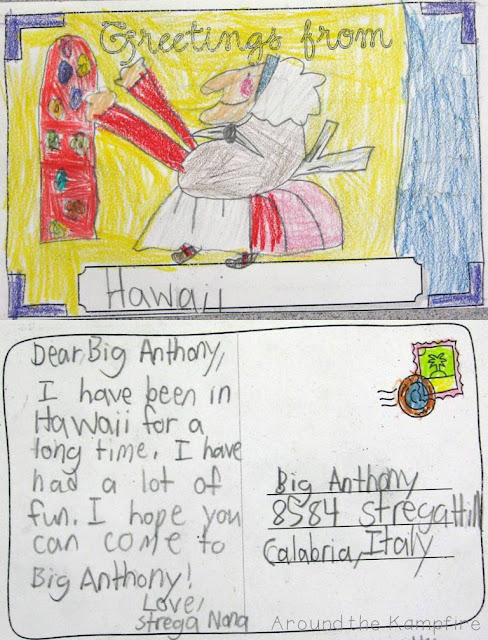 Greetings from
Hawaii
Dear Big Anthony,
I have been in
Hawaii for a
long time. I have
had a lot of
fun. I hope you
can come to
Big Anthony!
Love,
Strega Nona
Big Anthony
8584 Strega Hill
Calabria, Italy
Around the Kampfire